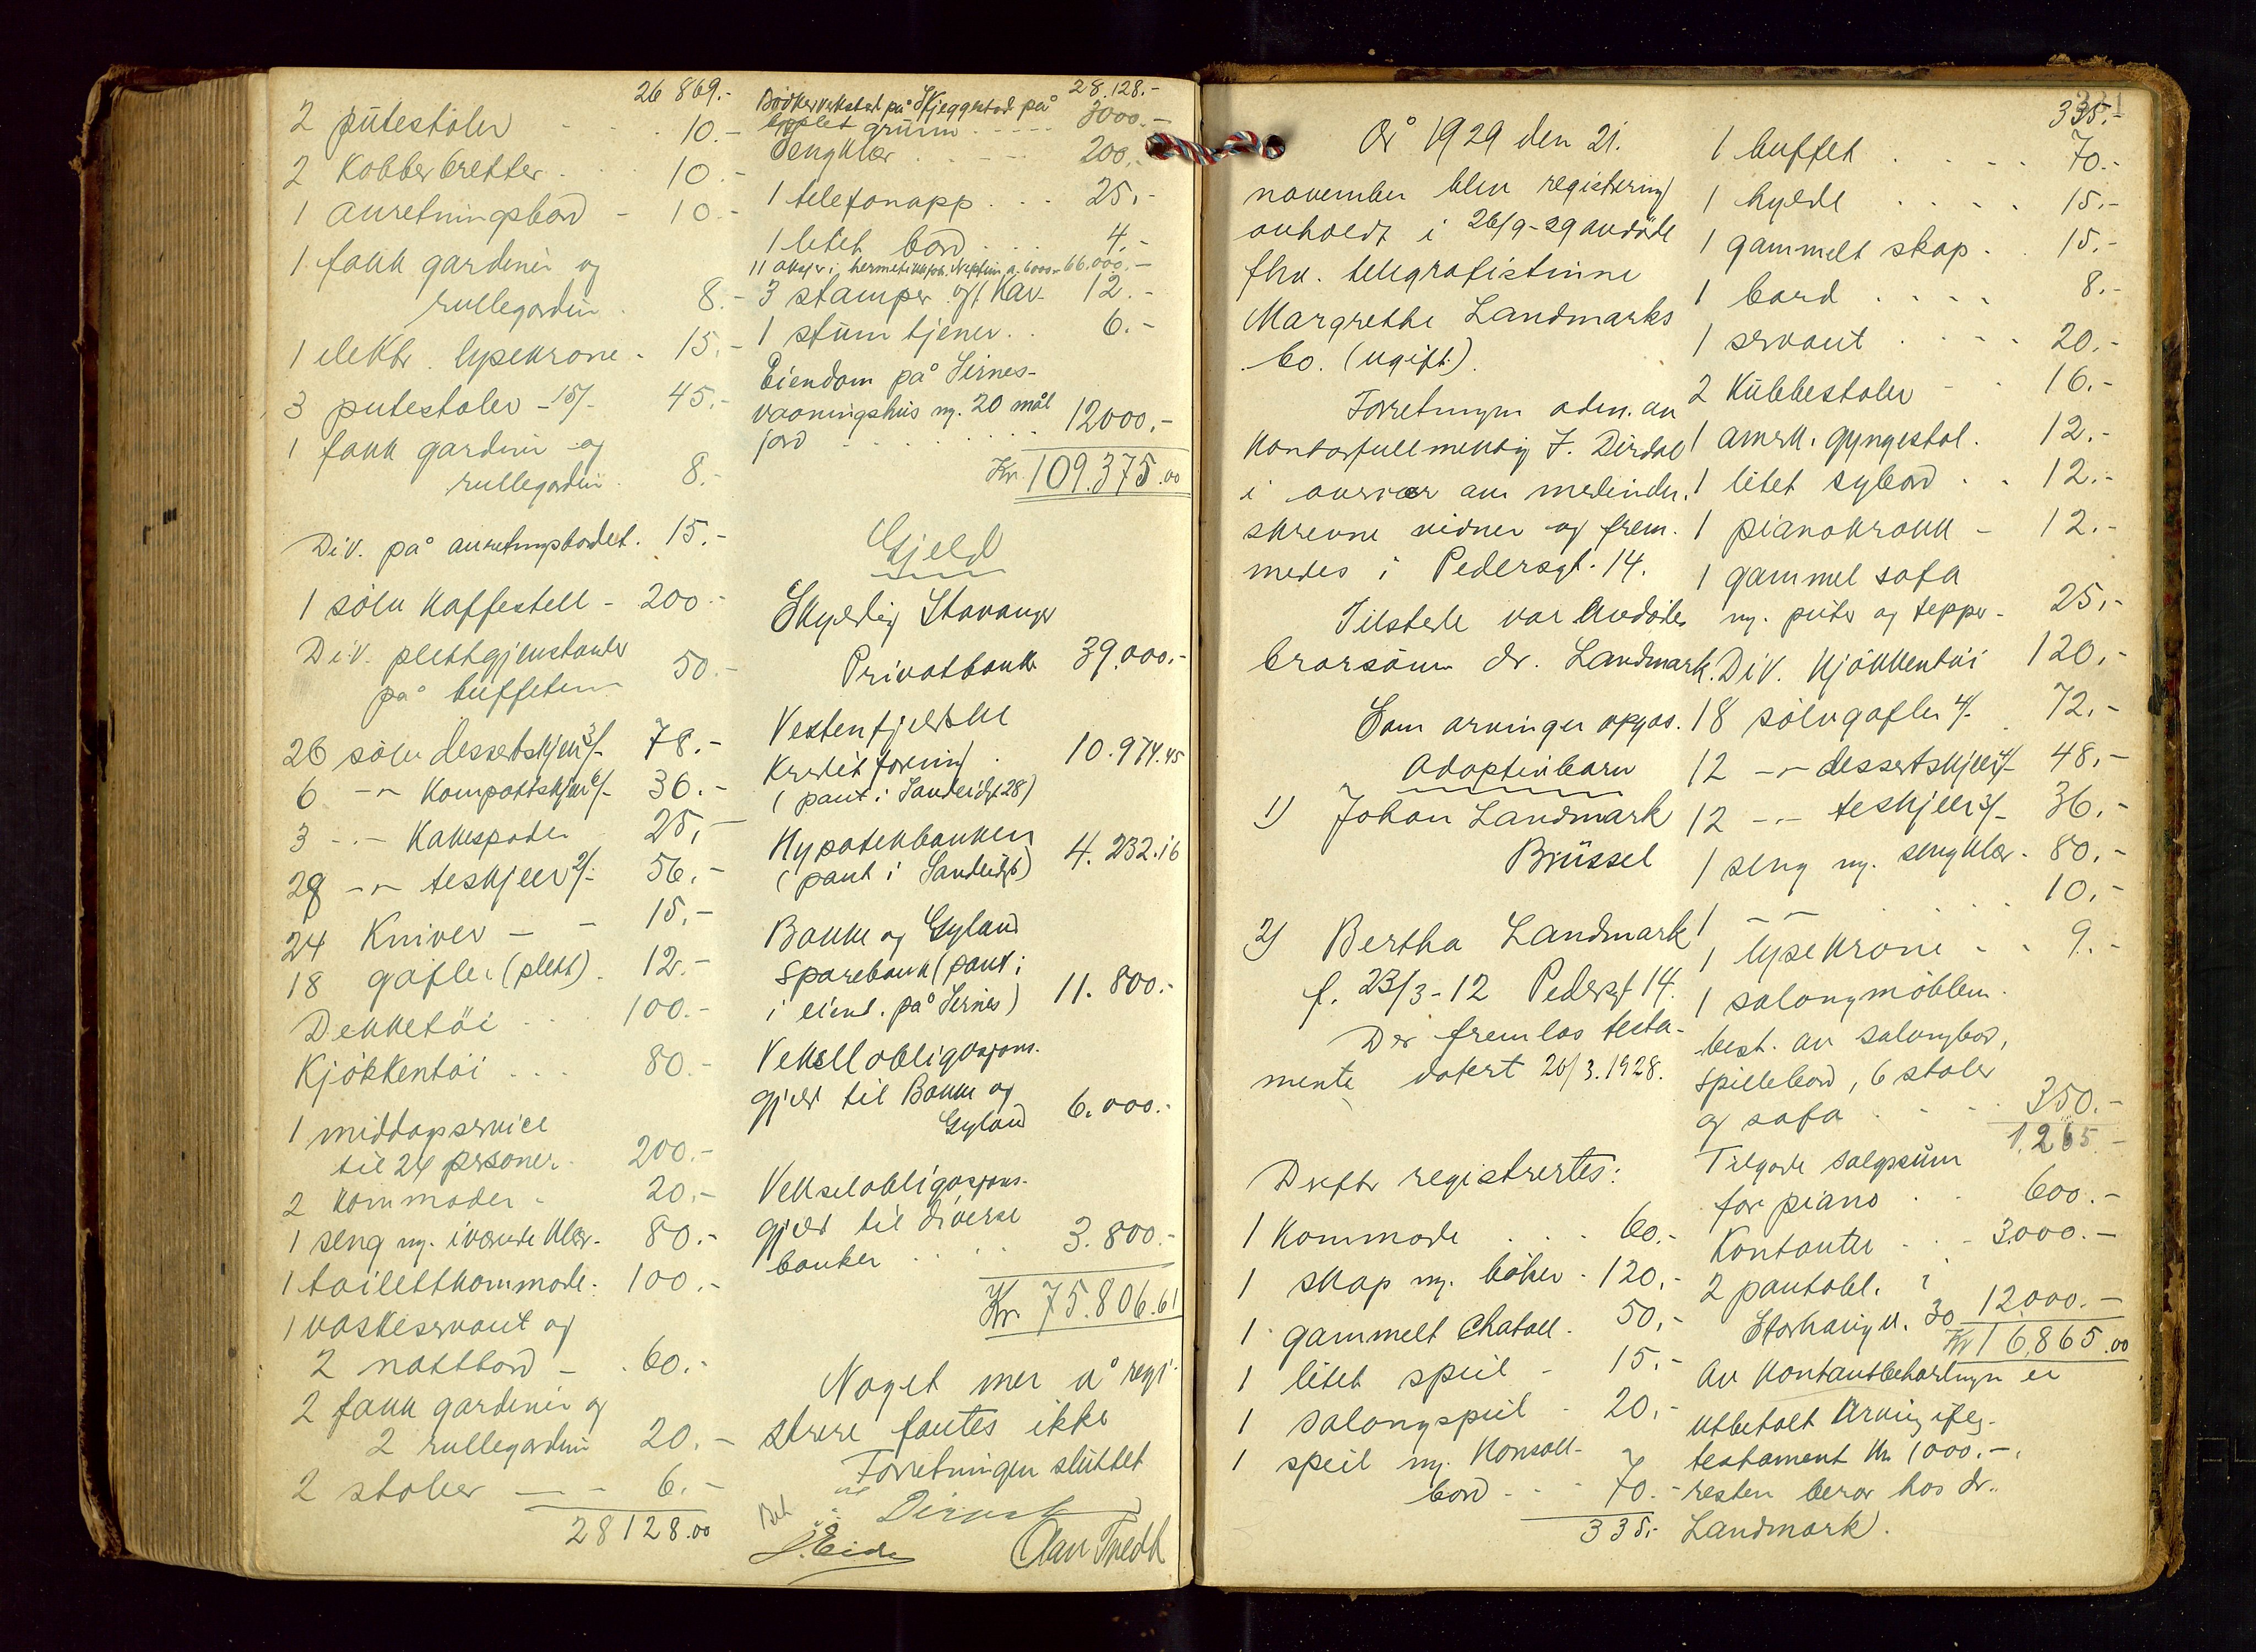 26 869.-
2 putestoler - - - 10.-
2 Kobberbretter - - 10.-
1 anretningsbord - 10.-
1 fakk gardiner og
rullegardin - 8.-
1 elektr. lysekrone - 15.-
3 putestoler - 15/- 45.-
1 fakk gardiner og
rullegardin - 8.-
Div. på anretningsbordet. 15.-
1 sølv kaffestell - 200.-
Div. plettgjenstander
på buffeten 50.-
26 sølv dessertskjeer 3/- 78.-
6 -"- Kompottskjeer 6/- 36.-
3 -"- Kakespader 25,-
28 -"- teskjeer 2/- 56.-
24 Kniver - - 15.-
18 gafler (plett) - 12.-
Dekketöi - - 100.-
Kjökkentöi - - - 80.-
1 middagservice
til 24 personer - 200.-
2 kommoder - 20.-
1 seng m. iværende klær - 80.-
1 toilettkommode - 100.-
1 vaskeservant og
2 nattbord - - 60.-
2 fakk gardiner og
2 rullegardin 20.-
2 stoler - - 6.-
28128.00
28.128.-
Bödkerverksted på Skjeggestad på
bygslet grunn - - - 3000.-
Sengklær - - - 200.-
1 telefonapp. - - - 25,-
1 litet bord - - - 4.-
11 aksjer i hermetikkfab. Neptun a. 6000.- 66.000.-
3 stamper og 1 kar - 12.-
1 stum tjener - - 6.-
Eiendom på Sirnes-
vaaningshus m. 20 mål
jord - - - - 12000.-
Kr. 109.375.00
Gjeld
Skyldig Stavanger
Privatbank 39.000.-
Vestenfjeldske
Kreditforening - 10.974.45
(pant i Sandeidgt 28)
Hypotekbanken
(pant i Sandeidgt) 4.232.16
Bakke og Gyland
Sparebank (pant i
i eiend. på Sirnes) 11.800.-
Veksellobligasjons-
gjeld til Bakke og
Gyland 6.000.-
Vekselobligasjons-
gjeld til diverse
banker - - - 3.800.-
Kr. 75.806.61
Noget mer å regi-
strere fantes ikke
Forretningen sluttet
J. Eide
335.-
År 1929 den 21.
november blev registrering
avholdt i 26/9-29 avdöde
fhv. telegrafistinne
Margrethe Landmarks
bo. (ugift).
Forretningen adm. av
Kontorfullmektig F. Dirdal
i overvær av medunder-
skrevne vidner og frem-
medes i Pedersgt. 14.
Tilstede var avdödes
brorsönn dr. Landmark.
Som arvinger opgas.
Adoptivbarn
1) Johan Landmark
Brüssel
2) Bertha Landmark
f. 23/3-12 Pedersgt 14.
Der fremlas testa-
mente datert 26/3.1928.
Derefter registrertes:
1 Kommode - - - 60.-
1 skap m. böker - 120.-
1 gammelt Chatoll - 50,-
1 litet speil - 15.-
1 salongspeil - 20.-
1 speil m. Konsoll-
bord - - - 70.-
335.-
1 buffet - - - - 70.-
1 hylde - - - - 15.-
1 gammelt skap - - 15.-
1 bord - - - - 8.-
1 servant - - - - 20.-
2 Kubbestoler - - 16.-
1 amrk. gyngestol. 12.-
1 litet sybord - - 12.-
1 pianokrakk - 12.-
1 gammel sofa
m. puter og tepper - 25.-
Div. Kjökkentöi 120.-
18 sölvgafler 4/- 72.-
12 -"- dessertskjeer 4/- 48.-
12 -"- teskjeer 3/- 36.-
1 seng m. sengklær - 80.-
1 -"- - - - 10.-
1 lysekrone - - 9.-
1 salongmöblem.
best. av salongbord,
spillebord, 6 stoler
og sofa - - - 350.-
1.265.-
Tilgode salgssum
for piano - - 600.-
Kontanter - - 3.000.-
2 pantobl. i
Storhaugv. 30 12000.-
Kr 16.865.00
Av Kontantbeholdningen er
utbetalt Arving ifölg.
testament kr 1000.-,
resten beror hos dr.
Landmark.